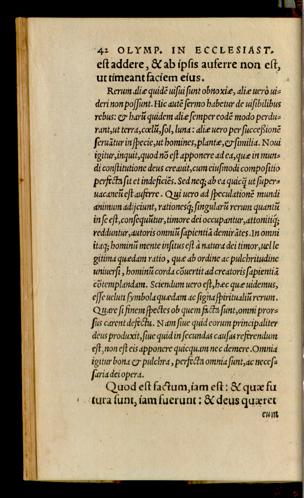 42 OLYMP. IN ECCLESIAST.
est addere, & ab ipsis auferre non est,
ut timeant faciem eius.
Rerum aliæ quidē uisui sunt obnoxiæ, aliæ uerò ui-
deri non possunt. Hic autē sermo habetur de uisibilibus
rebus: & harū quidem aliæ semper eodē modo perdu-
rant, ut terra, cœlū, sol, luna: aliæ uero per successionē
seruātur in specie, ut homines, plantæ, & similia. Noui
igitur, inquit, quod nō est apponere ad ea, quæ in mun-
di constitutione deus creauit, cum eiusmodi compositio
perfecta sit et indeficiēs. Sed neq; ab ea quicq̄ ut super-
uacaneū est auferre. Qui uero ad speculationē mundi
animum adijciunt, rationesq́; singularū rerum quantū
in se est, consequūtur, timore dei occupantur, attonitiq́;
redduntur, autoris omniū sapientiā demirātes. In omni
itaq; hominū mente insitus est à natura dei timor, uel le
gitima quædam ratio, quæ ab ordine ac pulchritudine
uniuersi, hominū corda cōuertit ad creatoris sapientiā
cōtemplandam. Sciendum uero est, hæc quæ uidemus,
esse ueluti symbola quædam ac signa spiritualiū rerum.
Quare si finem spectes ob quem facta sunt, omni pror-
sus carent defectu. Nam siue quid eorum principaliter
deus produxit, siue quid in secundas causas referendum
est, non est eis apponere quicquam nec demere. Omnia
igitur bona & pulchra, perfecta omnia sunt, ac neces-
saria dei opera.
Quod est factum, iam est: & quæ fu
tura sunt, iam fuerunt: & deus quæret
eum